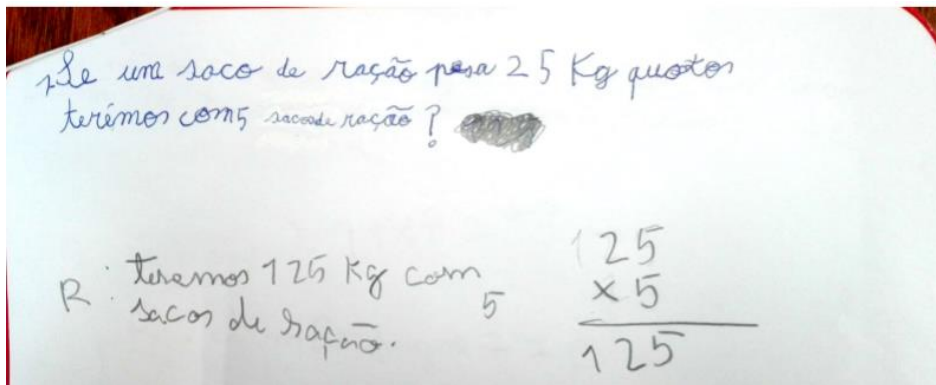 1 Se um saco de ração pesa 25 Kg quatos
terémos com 5 sacos de ração?
R: teremos 125 Kg com 5
sacos de ração.
125
x5
125